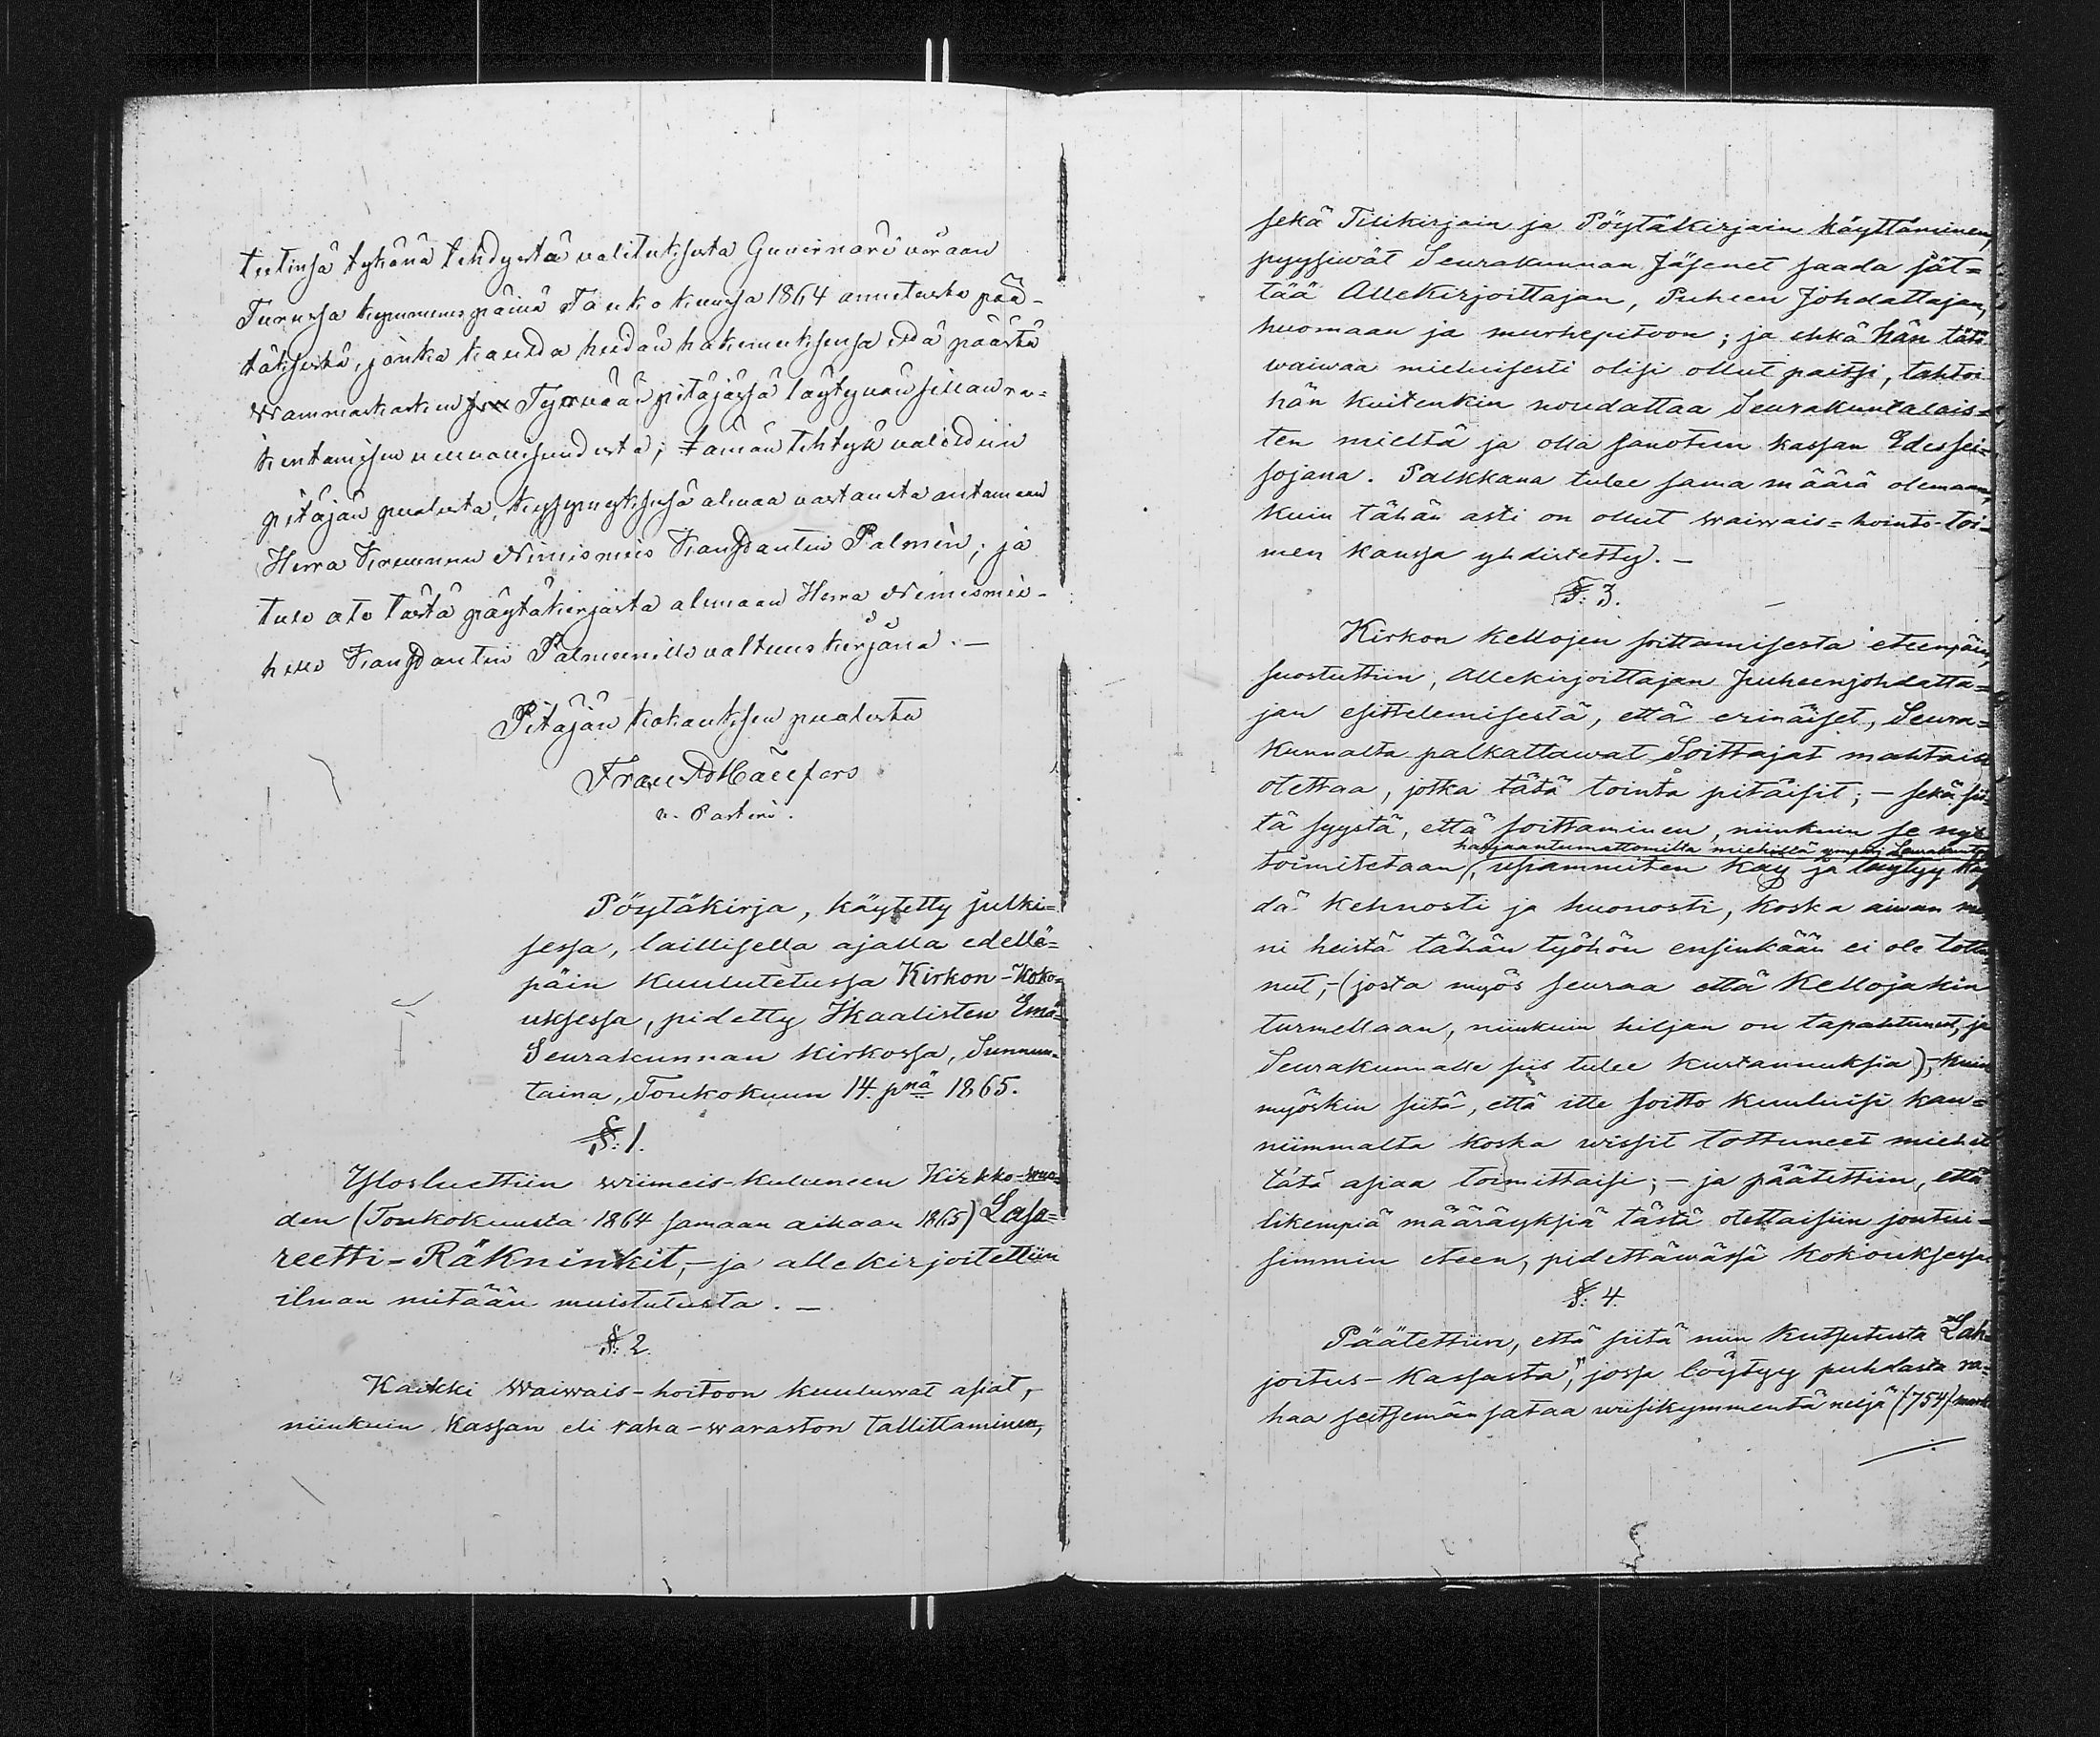 tietinsä tykönä tehdystä valituksesta Guvernörin
Turussa kymmenes päivä Toukokuussa 1864 annetusta pää-
töksestä, jonka kautta heidän hakemuksensa että päästä
Wammaskosken Tyrvään pitäjässä löytyvän sillan ra-
kentamisen ; tämän tehtyä valittiin
pitäjän puolesta, kysymyksessä olevaa vastausta antamaan
Herra Kruunun Nimismies Konstantin Palmén; ja
tulee ote tästä pöytäkirjasta olemaan Herra Nimismie-
helle Konstantin Palmenille valtuuskirjana. —
Pitäjän kokouksen puolesta
Frans
v. Pastori.
Pöytäkirja, käytetty julki=
sessa, laillisella ajalla edellä=
päin kuulutetussa Kirkon-Koko=
uksessa, pidetty Ikaalisten Emä=
Seurakunnan kirkossa, Sunnun=
taina, Toukokuun 14. pnä 1865.
§: 1.
Ylösluettiin wiimeis-kuluneen Kirkko-wuo=
den (Toukokuusta 1864 samaan aikaan 1865) Lasa=
reetti=Räkninkit,– ja allekirjoitettiin
ilman mitään muistutusta. —
§: 2.
Kaikki Waiwais-hoitoon kuuluwat asiat,–
niinkuin Kassan eli raha-waraston tallittaminen,
sekä Tilikirjain ja Pöytäkirjain käyttäminen,
pyysiwät Seurakunnan Jäsenet saada jät=
tää Allekirjoittajan, Puheen Johdattajan,
huomaan ja murhepitoon; ja ehkä hän tätä
waiwaa mieluisesti olisi ollut paitsi, tahtoi
hän kuitenkin noudattaa Seurakuntalais=
ten mieltä ja olla sanotun kassan Edessei=
sojana. Palkkana tulee sama määrä olemaan,
kuin tähän asti on ollut waiwais=hointo-toi=
men kanssa yhdistetty. —
§: 3.
Kirkon kellojen soittamisesta eteenpäin,
suostuttiin, Allekirjoittajan Puheenjohdatta=
jan esittelemisestä, että erinäiset, Seura=
kunnalta palkattawat Soittajat mahtaisi
otettaa, jotka tätä tointa pitäisit; – sekä sii=
tä syystä, että soittaminen, niinkuin se nyt
harjaantumattomilta miehillä ympäri Seurakuntaa
toimitetaan, usiammiten käy ja löytyy käy
dä kehnosti ja huonosti, koska aiwan mo
ni heistä tähän työhön ensinkään ei ole tottu=
nut,–(josta myös seuraa että Kellojakin
turmellaan, niinkuin hiljan on tapahtunut, ja
Seurakunnalle siis tulee kustannuksia),– kuin
myöskin siitä, että itte soitto kuuluisi kau=
niimmalta koska wissit tottuneet miehet
tätä asiaa toimittaisi; – ja päätettiin, että
likempiä määräyksiä tästä otettaisiin joutui=
simmin eteen, pidettäwässä kokouksessa.
§: 4.
Päätettiin, että siitä niin kutsutusta Lah=
joitus-Kassasta", jossa löytyy puhdasta ra=
haa seitsemänsataa wiisikymmentä neljä (754) mark